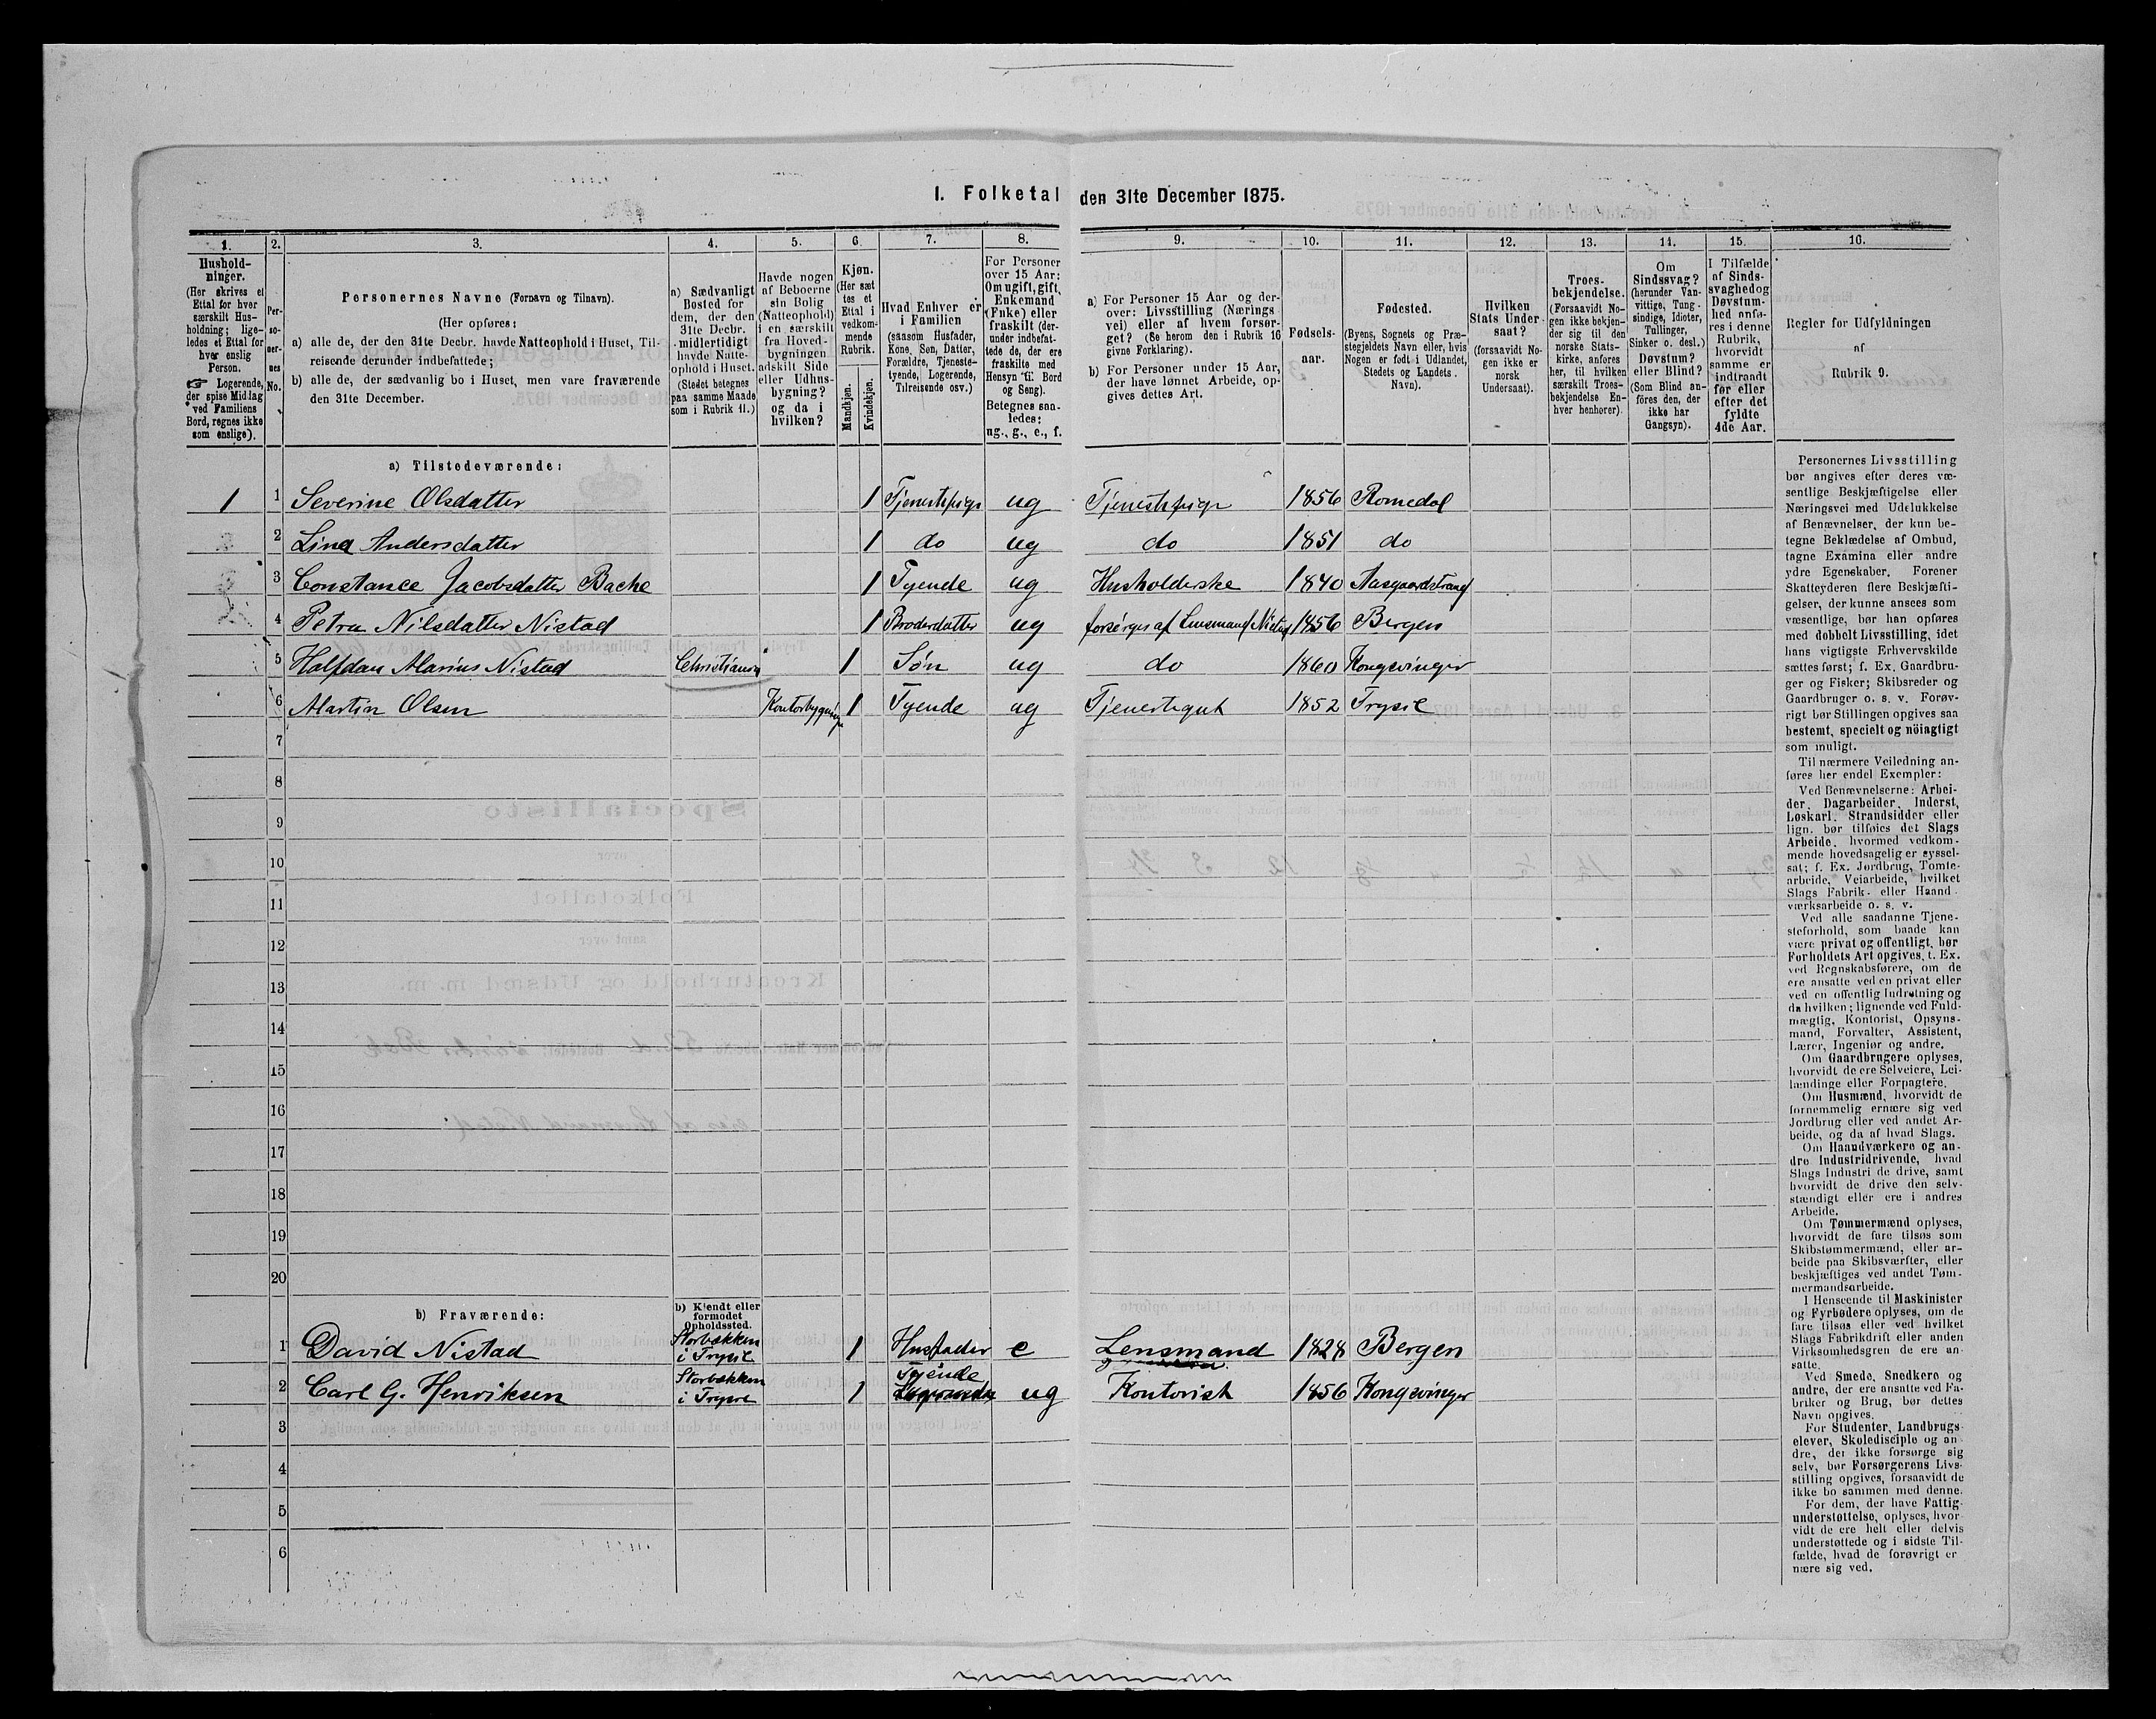 I. Folketal den 31te December 1875.
1. 2. 3. 4. 5. 6. 7. 8. 9. 10. 11. 12. 13. 14. 15. 16.
Hushold-
ninger.
(Her skrives et
Ettal for hver
særskilt Hus-
holdning; lige-
ledes et Ettal for
hver enslig
Person.
☞ Logerende,
der spise Middag
ved Familiens
Bord, regnes ikke
som enslige).
Per-
so-
ner-
nes
No.
Personernes Navne (Fornavn og Tilnavn).
(Her opføres:
a) alle de, der den 31te Decbr. havde Natteophold i Huset, Til-
reisende derunder indbefattede;
b) alle de, der sædvanlig bo i Huset, men vare fraværende
den 31te December.
a) Sædvanligt
Bosted for
dem, der den
31te Decbr.
midlertidigt
havde Natte-
ophold i Huset.
(Stedet betegnes
paa samme Maade
som i Rubrik 11.)
Havde nogen
af Beboerne
sin Bolig
(Natteophold)
i en særskilt
fra Hoved-
bygningen
adskilt Side
eller Udhus-
bygning?
og da i
hvilken?
Kjøn.
(Her sæt
tes et
Ettal i
vedkom-
mende
Rubrik.
Mandkjøn.
Kvindekjøn.
Hvad Enhver er
i Familien
(saasom Husfader,
Kone, Søn, Datter,
Forældre, Tjeneste-
tyende, Logerende,
Tilreisende osv.)
For Personer
over 15 Aar:
Om ugift, gift,
Enkemand
(Enke) eller
fraskilt (der-
under indbefat-
tede de, der ere
fraskilte med
Hensyn til Bord
og Seng).
Betegnes saa-
ledes:
ug., g., e., f.
a) For Personer 15 Aar og der-
over: Livsstilling (Nærings
vei) eller af hvem forsør-
get? (Se herom den i Rubrik 16
givne Forklaring).
b) For Personer under 15 Aar,
der have lønnet Arbeide, op-
gives dettes Art.
Fødsels-
aar.
Fødested.
(Byens, Sognets og Præ-
stegjeldets Navn eller, hvis
Nogen er født i Udlandet,
Stedets og Landets
Navn).
Hvilken
Stats Under
saat?
(forsaavidt No-
gen ikke er
norsk
Undersaat).
Troes-
bekjendelse.
(Forsaavidt No-
gen ikke bekjen-
der sig til den
norske Stats-
kirke, anføres
her, til hvilken
særskilt Troes-
bekjendelse En-
hver henhører).
Om
Sindssvag?
(herunder Van-
vittige, Tung-
sindige, Idioter,
Tullinger,
Sinker o. desl.)
Døvstum?
eller Blind?
(Som Blind an-
føres den, der
ikke har
Gangsyn).
I Tilfælde
af Sinds-
svaghed og
Døvstum-
hed anfø-
res i denne
Rubrik,
hvorvidt
samme er
indtraadt
før eller
efter det
fyldte
4de Aar.
Regler for Udfyldningen
af
Rubrik 9.
a) Tilstedeværende:
1 1 Severine Olsdatter 1 Tjenestepige ug Tjenestepige 1856 Romedal
2 Lina Andersdatter 1 do ug do 1851 do
3 Constance Jacobsdatter Bache 1 Tyende ug Husholderske 1840 Aasgaardstrand
4 Petra Nilsdatter Nistad 1 Broderdatter ug forsørges af Lensmand Nistad 1856 Bergen
5 Halfdan Marius Nistad Christiania 1 Søn ug do 1860 Kongsvinger
6 Martin Olsen Kontorbygning 1 Tyende ug Tjenestegut 1852 Trysil
7
8
9
10
11
12
13
14
15
16
17
18
19
20
b) Fraværende:
b) Kjendt eller
formodet
Opholdssted.
1 David Nistad Storbækken i Trysil 1 Husfader e Lensmand 1828 Bergen
2 Carl G. Henriksen Storbækken i Trysil 1 Tyende ug Kontorist 1856 Kongsvinger
3
4
5
6
Personernes Livsstilling
bør angives efter deres væ-
sentlige Beskjæftigelse eller
Næringsvei med Udelukkelse
af Benævnelser, der kun be-
tegne Beklædelse af Ombud,
tagne Examina eller andre
ydre Egenskaber. Forener
Skatteyderen flere Beskjæfti-
gelser, der kunne ansees som
væsentlige, bør han opføres
med dobbelt Livsstilling, idet
hans vigtigste Erhvervskilde
sættes først; f. Ex. Gaardbru-
ger og Fisker; Skibsreder og
Gaardbruger o. s. v. Forøv-
rigt bør Stillingen opgives saa
bestemt, specielt og nöiagtigt
som muligt.
Til nærmere Veiledning an-
føres her endel Exempler:
Ved Benævnelserne: Arbei-
der, Dagarbeider, Inderst,
Løskarl, Strandsidder eller
lign. bør tilføies det Slags
Arbeide, hvormed vedkom-
mende hovedsagelig er syssel-
sat; f. Ex. Jordbrug, Tomte-
arbeide, Veiarbeide, hvilket
Slags Fabrik- eller Haand-
værksarbeide o. s. v.
Ved alle saadanne Tjene-
steforhold, som baade kan
være privat og offentligt, bør
Forholdets Art opgives, t. Ex.
ved Regnskabsførere, om de
ere ansatte ved en privat eller
ved en offentlig Indretning og
da hvilken; lignende ved Fuld-
mægtig, Kontorist, Opsyns-
mand, Forvalter, Assistent,
Lærer, Ingeniør og andre.
Om Gaardbrugere oplyses,
hvorvidt de ere Selveiere, Lei-
lændinge eller Forpagtere.
Om Husmænd, hvorvidt de
fornemmelig ernære sig ved
Jordbrug eller ved andet Ar-
beide, og da af hvad Slags.
Om Haandværkere og an-
dre Industridrivende, hvad
Slags Industri de drive, samt
hvorvidt de drive den selv-
stændigt eller ere i andres
Arbeide.
Om Tømmermænd oplyses,
hvorvidt de fare tilsøs som
Skibstømmermænd, eller ar-
beide paa Skibsværfter, eller
beskjæftiges ved andet Tøm-
mermandsarbeide.
I Henseende til Maskinister
og Fyrbødere oplyses, om de
fare tilsøs eller ved hvilket
Slags Fabrikdrift eller anden
Virksomhedsgren de ere an-
satte.
Ved Smede, Snedkere og
andre, der ere ansatte ved Fa-
briker og Brug, bør dettes
Navn opgives.
For Studenter, Landbrugs-
elever, Skoledisciple og an-
dre, der ikke forsørge sig
selv, bør Forsørgerens Livs-
stilling opgives, forsaavidt de
ikke bo sammen med denne.
For dem, der have Fattig-
understøttelse, oplyses, hvor-
vidt de ere helt eller delvis
understøttede og i sidste Til-
fælde, hvad de forøvrigt er
nære sig ved.